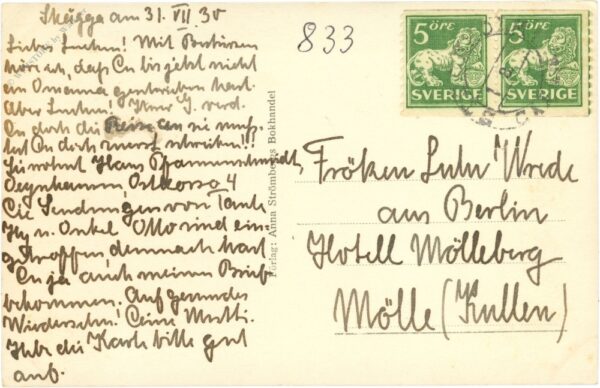 Skägga am 31. VII 30
Liebe Luchen! Mit Bedauern
höre ich, daß Du bis jetzt nicht
an Omama geschrieben hast.
Aber Luchen!
Du doch die Reise an sie muß-
test Du doch zuerst schreiben!!
Sie wohnt Hans Pfannenschmidt,
Oeynhausen, Ostkorso 4
Die Sendungen von Tante
u. Onkel Otto sind ein-
getroffen, demnach hast
Du ja auch meinen Brief
bekommen. Auf gesundes
Wiedersehn! Deine Mutti.
Hebe die Karte bitte gut
auf.
833
5 ÖRE
SVERIGE
5 ÖRE
SVERIGE
Förlag: Anna Strömbergs Bokhandel
Fröken Lulu Wrede
aus Berlin
Hotell Mölleberg
Mölle (Kullen)